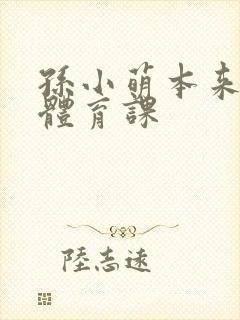 孫小萌本来
體育課
陸志遠